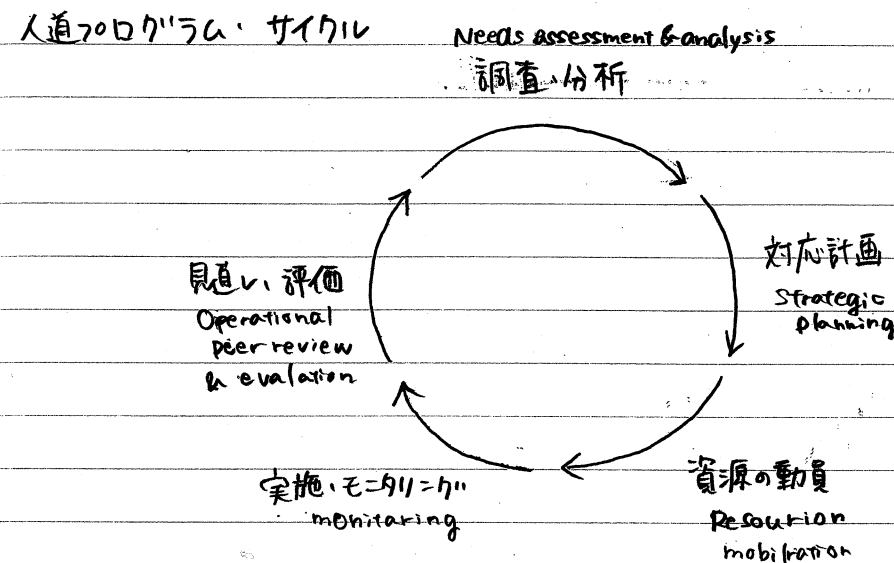 人道プログラム・サイクル
Needs assessment & analysis
調査・分析
対応計画
Strategic
planning
資源の動員
Resourion
mobilration
実施・モニタリング
monitaring
見直し、評価
Operational
peer review
& evalation